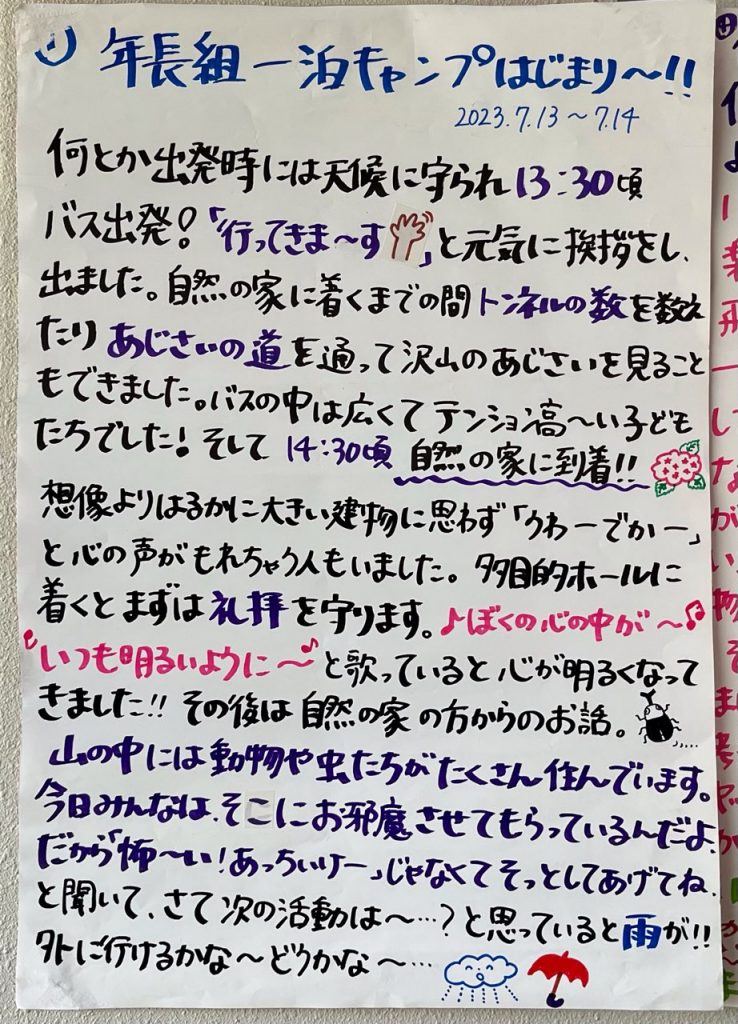 ① 年長組一泊キャンプはじまり〜!!
2023.7.13〜7.14
何とか出発時には天候に守られ13:30頃
バス出発!「行ってきま〜す」と元気に挨拶をし、
出ました。自然の家に着くまでの間トンネルの数を数え
たりあじさいの道を通って沢山のあじさいを見ること
もできました。バスの中は広くてテンション高〜い子ども
たちでした!そして14:30頃 自然の家に到着!!
想像よりはるかに大きい建物に思わず「うわーでかー」
と心の声がもれちゃう人もいました。多目的ホールに
着くとまずは礼拝を守ります。♪ぼくの心の中が〜♫
いつも明るいように〜♪と歌っていると心が明るくなって
きました!!その後は自然の家の方からのお話。
山の中には動物や虫たちがたくさん住んでいます。
今日みんなは、そこにお邪魔させてもらっているんだよ。
だから「怖〜い!あっちいけー」じゃなくてそっとしてあげてね。
と聞いて、さて次の活動は〜…?と思っていると雨が!!
外に行けるかな〜どうかな〜…